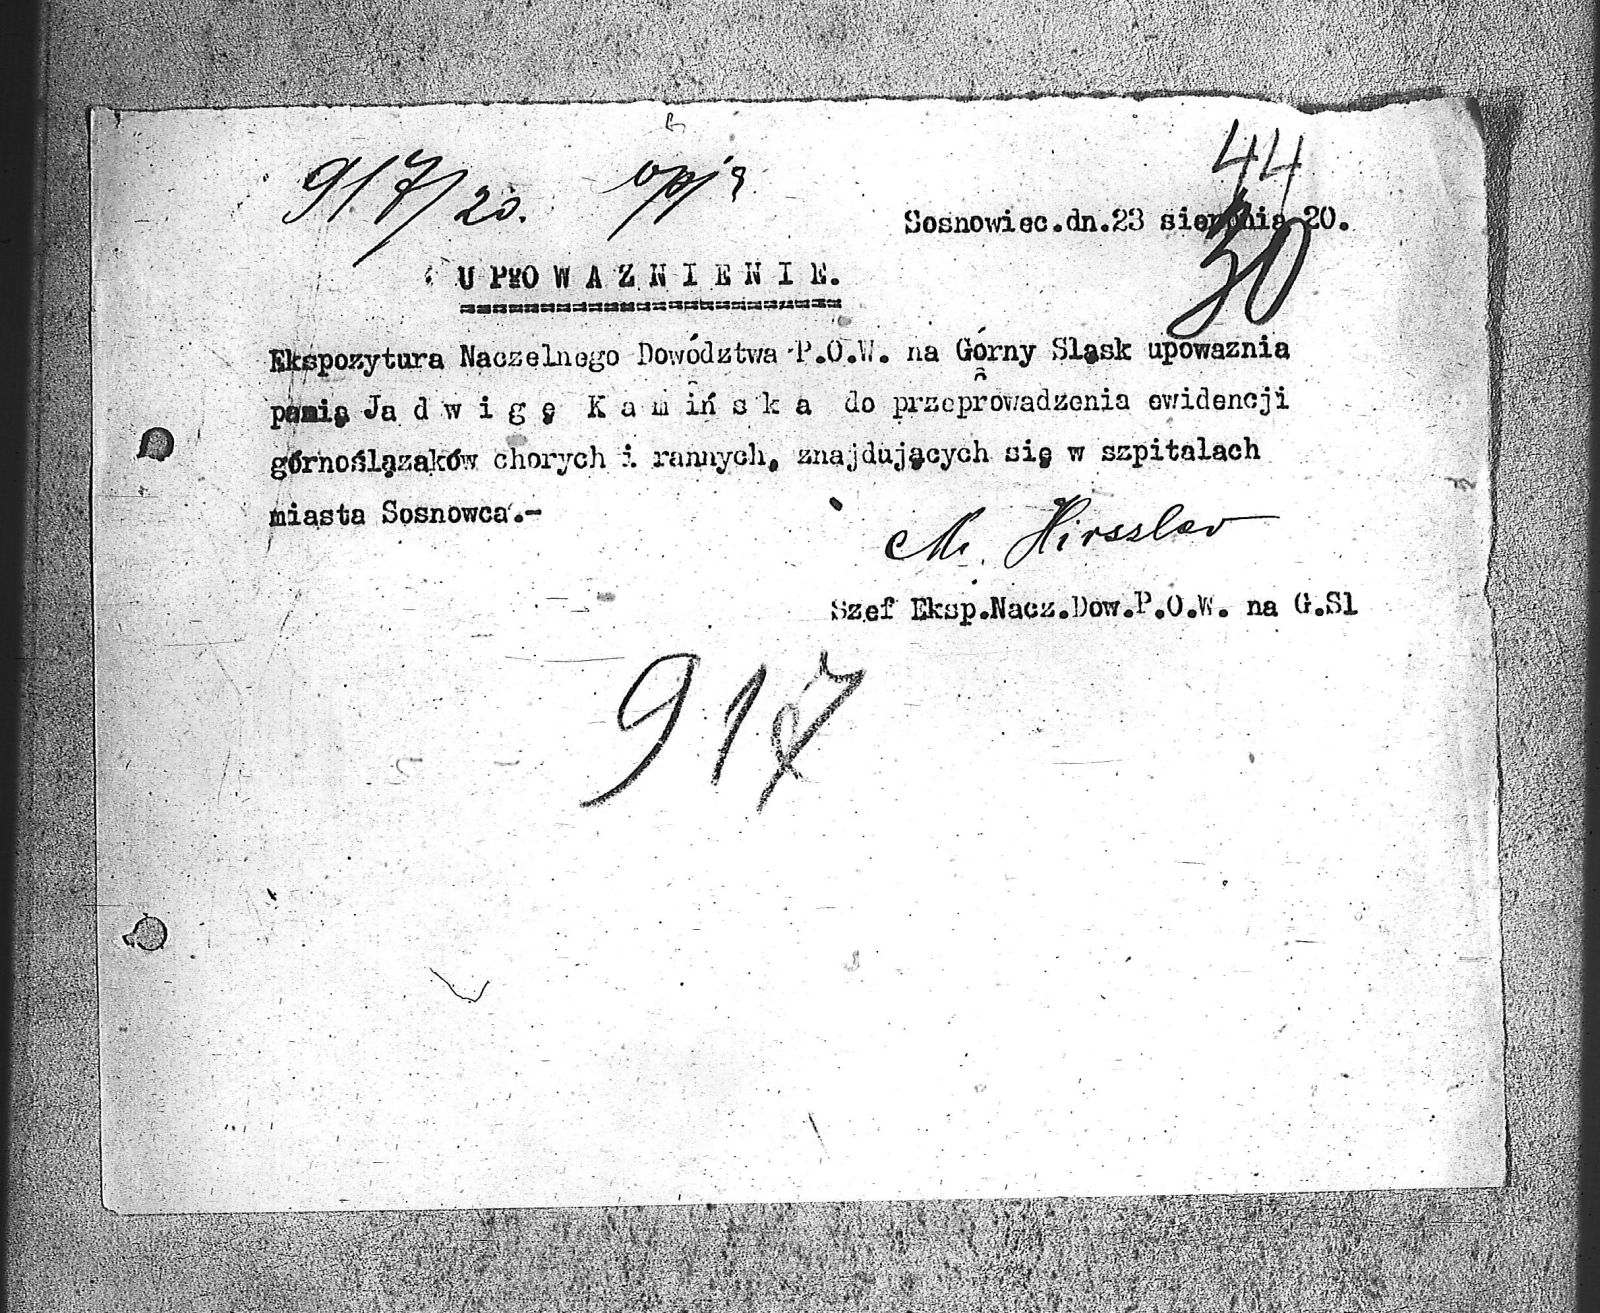 44
917/20.
Sosnowiec.dn.23 sierpnia 20.
30
U P O W A Z N I E N I E.
Ekspozytura Naczelnego Dowództwa P.O.W. na Górny Sląsk upowaznia
panią Ja d w i g ę K a m iń s k a do przeprowadzenia ewidencji
górnoślązaków chorych i rannych, znajdujących się w szpitalach
miasta Sosnowca.-
M. Hirszlev
Szef Eksp.Nacz.Dow.P.O.W. na G.Sl
917